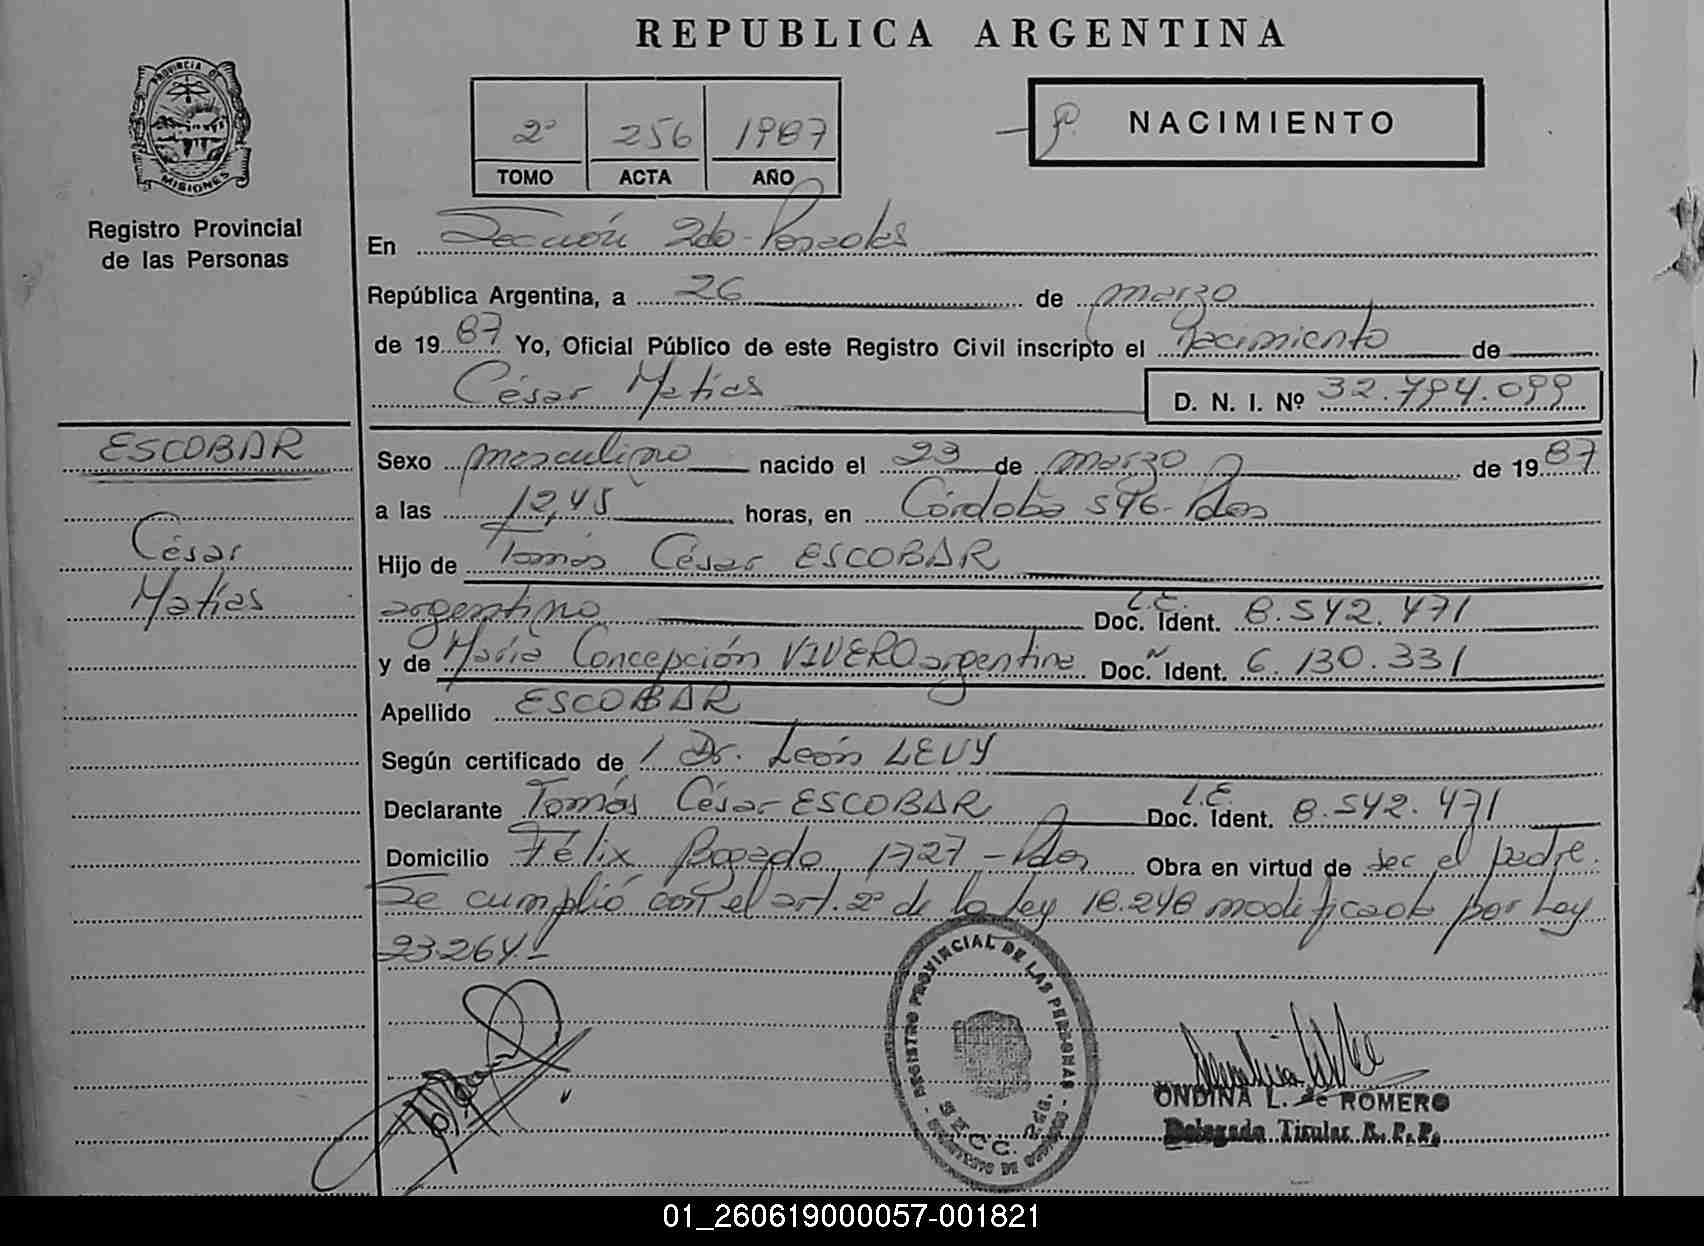 REPUBLICA ARGENTINA
PROVINCIA DE
MISIONES
Registro Provincial
de las Personas
2º 256 1987
TOMO ACTA AÑO
NACIMIENTO
En Sección 2do- Posadas
República Argentina, a 26 de marzo
de 1987 Yo, Oficial Público de este Registro Civil inscripto el Nacimiento de
César Matías D. N. I. Nº 32.794.099
ESCOBAR
César
Matías
Sexo masculino nacido el 23 de marzo de 1987
a las 12,45 horas, en Córdoba 596- Pdas
Hijo de Tomás César ESCOBAR
argentino L.E. Doc. Ident. 8.542.471
y de María Concepción VIVERO argentina Doc. Ident. 6.130.331
Apellido ESCOBAR
Según certificado de / Dr. León LEVY
Declarante Tomás César ESCOBAR L.E. Doc. Ident. 8.542.471
Domicilio Félix Bogado 1727 - Pdas Obra en virtud de ser el padre.
Se cumplió con el art. 2º de la ley 18.248 modificado por Ley
23.264.-
REGISTRO PROVINCIAL DE LAS PERSONAS
SECC. 2da.
ONDINA L. de ROMERO
Delegada Titular R. P. P.
01_260619000057-001821